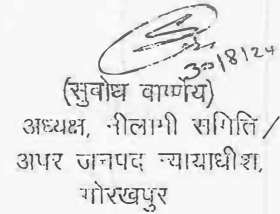 30/8/24
(सुबोध वार्ष्णेय)
अध्यक्ष, नीलामी समिति/
अपर जनपद न्यायाधीश,
गोरखपुर